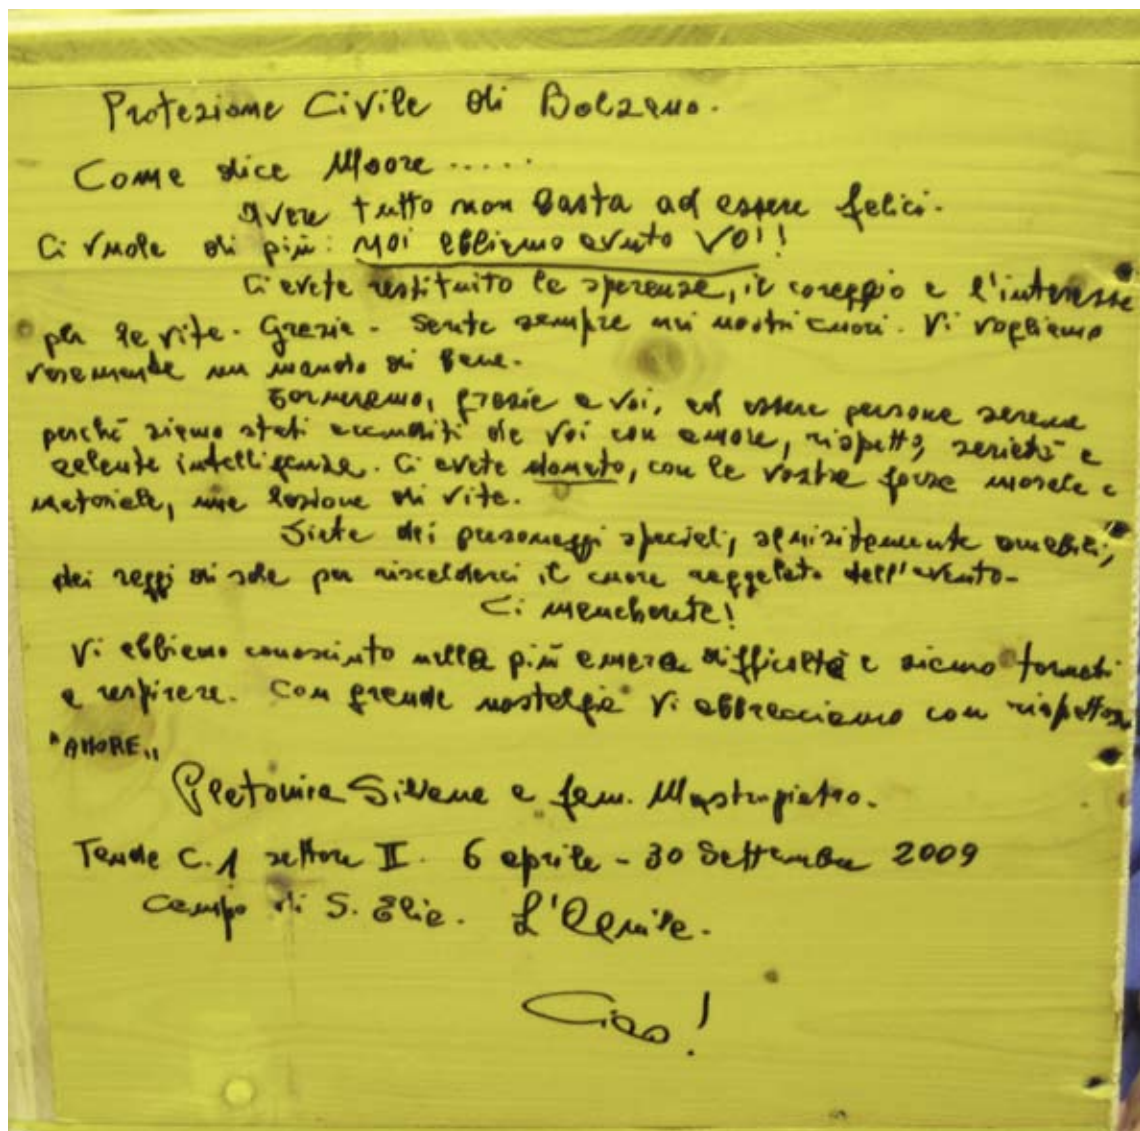 Protezione Civile di Bolzano.
Come dice Moore.....
Avere tutto non basta ad essere felici.
Ci vuole di più: noi abbiamo avuto VOI!
Ci avete restituito la speranza, il coraggio e l'interesse
per la vita. Grazie. Sarete sempre nei nostri cuori. Vi vogliamo
veramente un mondo di bene.
Torneremo, grazie a voi, ad essere persone serene
perché siamo stati accuditi da voi con amore, rispetto, serietà e
celente intelligenza. Ci avete donato, con la vostra forza morale e
materiale, una lezione di vita.
Siete dei personaggi speciali, squisitamente amabili,
dei raggi di sole per riscaldarci il cuore raggelato dell'evento.
Ci mancherete!
Vi abbiamo conosciuto nella più amara difficoltà e siamo tornati
a respirare. Con grande nostalgia Vi abbracciamo con rispettoso
"AMORE"
Platonica Silvana e fam. Mastropietro.
Tenda C.1 settore II. 6 aprile - 30 Settembre 2009
Campo di S. Elia. L'Aquila.
Ciao!